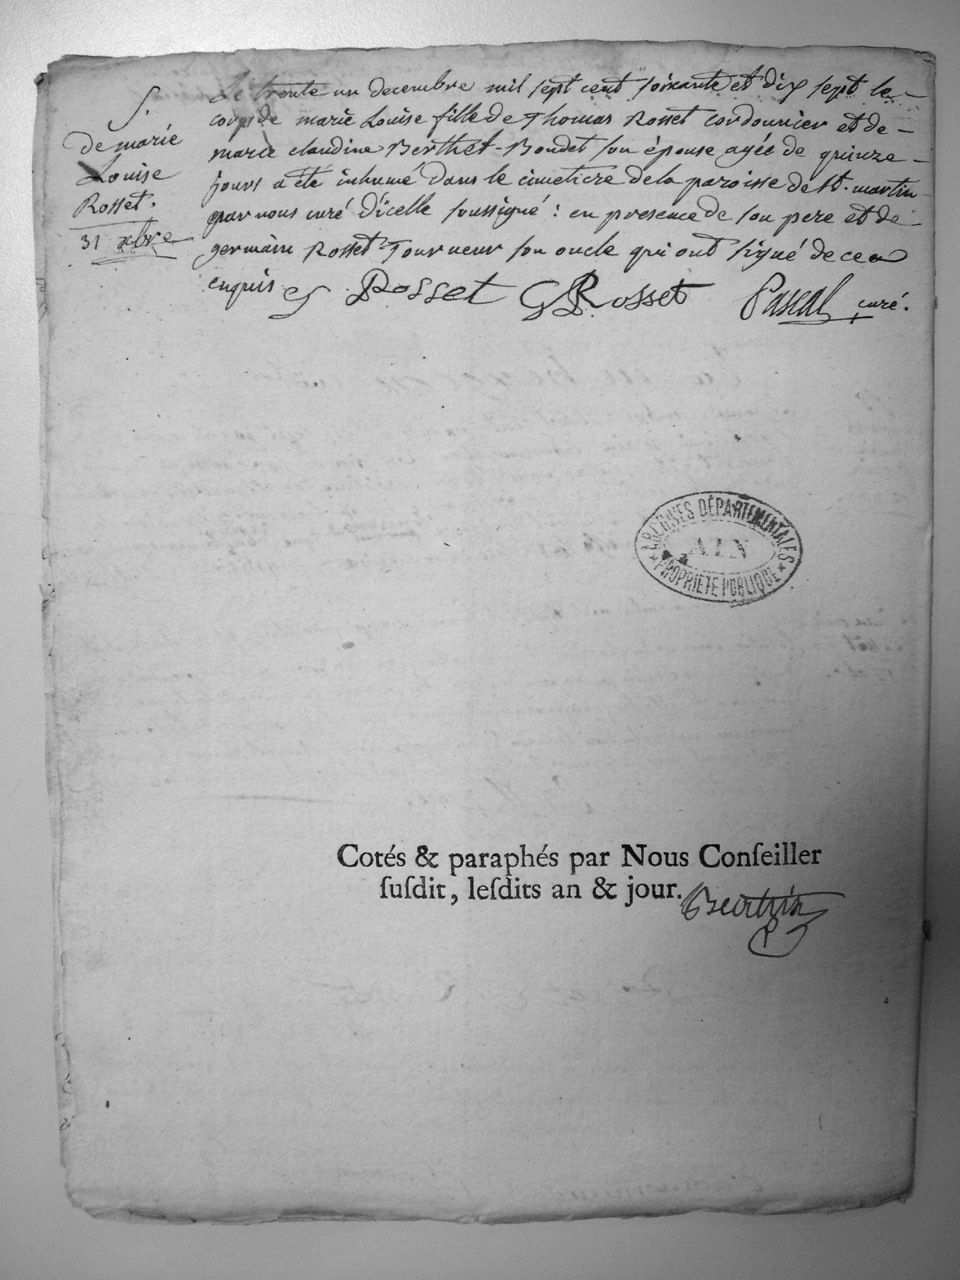 S.
de marie
Louise
Rosset.
31 xbre
Le trente un decembre mil sept cent soixante et dix sept le
corps de marie Louise fille de Thomas Rosset Cordonnier et de
marie claudine Berthet-Bondet son épouse agée de quinze
jours a été inhumé dans le cimetiere de la paroisse de St. martin
par nous curé d'icelle soussigné : en presence de son pere et de
germain Rosset Tourneur son oncle qui ont signé de ce
enquis Rosset G Rosset Pascal curé.
ARCHIVES DÉPARTEMENTALES
AIN
PROPRIÉTÉ PUBLIQUE
Cotés & paraphés par Nous Conſeiller
ſuſdit, leſdits an & jour.